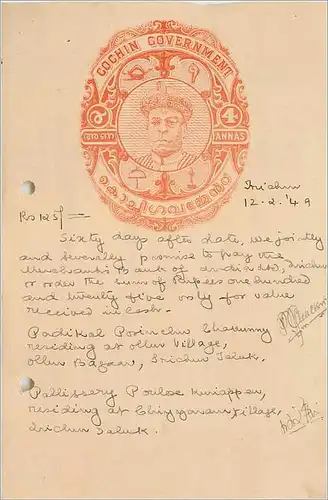 COCHIN GOVERNMENT
൪
4
ANNAS
Trichur
12.2.'49
Rs 125/=
Sixty days after date, we jointly
and severally promise to pay the
Merchants Bank of India Ltd, Trichur
or order the sum of Rupees one hundred
and twenty five only for value
received in cash.
Padikal Porinchu Chakunny
residing at Ollur Village,
Ollur Bazaar, Trichur Taluk.
Pallissery Poulose Kuriappen,
residing at Village,
Trichur Taluk.